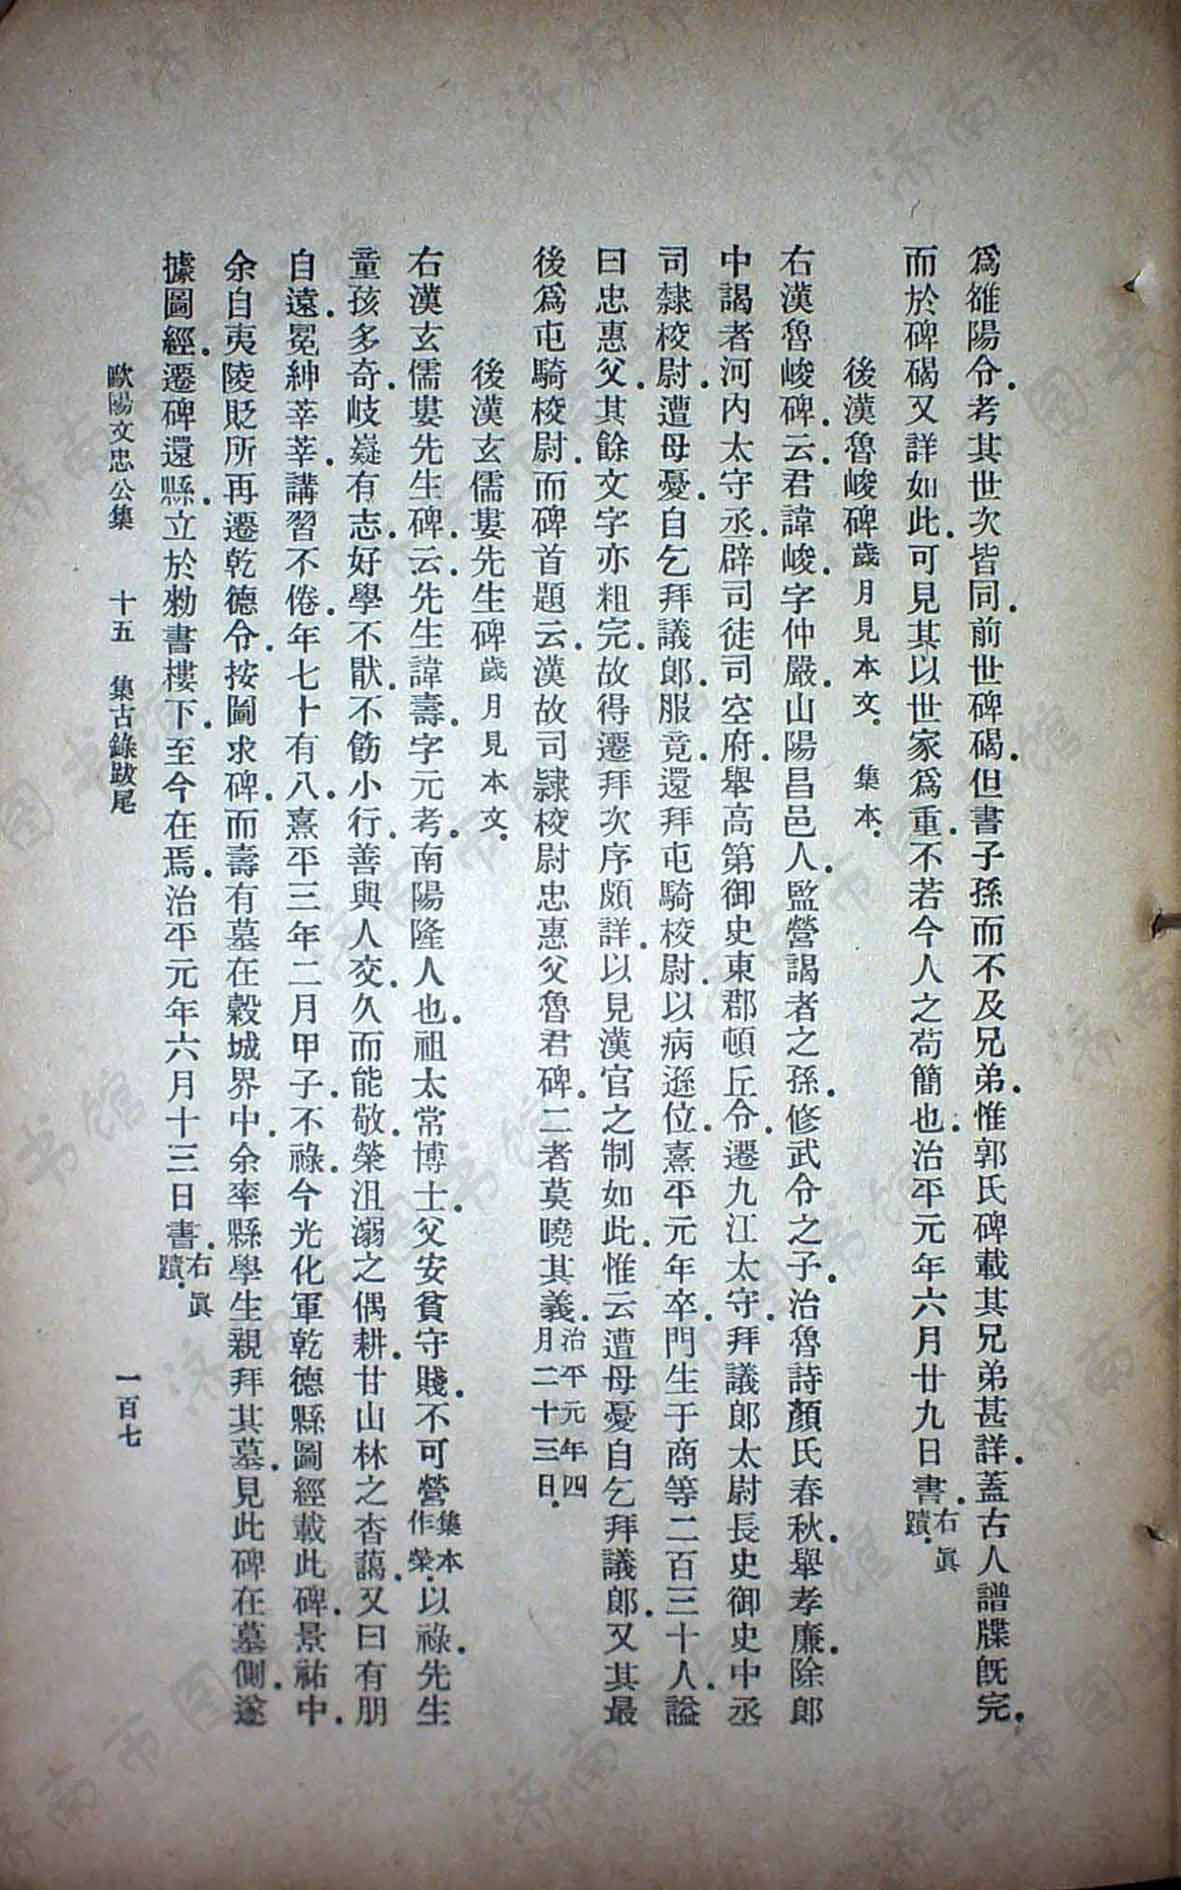 爲雒陽令.考其世次皆同.前世碑碣.但書子孫而不及兄弟.惟郭氏碑載其兄弟甚詳.蓋古人譜牒旣完.
而於碑碣又詳如此.可見其以世家爲重.不若今人之苟簡也.治平元年六月廿九日書.右眞蹟.
後漢魯峻碑歲月見本文.集本.
右漢魯峻碑.云.君諱峻.字仲嚴.山陽昌邑人.監營謁者之孫.修武令之子.治魯詩顏氏春秋.舉孝廉.除郎
中謁者河內太守丞.辟司徒司空府.舉高第御史東郡頓丘令.遷九江太守.拜議郎太尉長史御史中丞
司隸校尉.遭母憂.自乞拜議郎.服竟.還拜屯騎校尉.以病遜位.熹平元年卒.門生于商等二百三十人.謚
曰忠惠父.其餘文字亦粗完.故得遷拜次序頗詳.以見漢官之制如此.惟云遭母憂自乞拜議郎.又其最
後爲屯騎校尉.而碑首題云.漢故司隸校尉忠惠父魯君碑.二者莫曉其義.治平元年四月二十三日.
後漢玄儒婁先生碑歲月見本文.
右漢玄儒婁先生碑.云.先生諱壽.字元考.南陽隆人也.祖太常博士.父安貧守賤.不可營集本作榮.以祿.先生
童孩多奇.岐嶷有志.好學不猒.不飭小行.善與人交.久而能敬.榮沮溺之偶耕.甘山林之杳藹.又曰有朋
自遠.冕紳莘莘.講習不倦.年七十有八.熹平三年二月甲子.不祿.今光化軍乾德縣圖經載此碑.景祐中.
余自夷陵貶所再遷乾德令.按圖求碑.而壽有墓在穀城界中.余率縣學生親拜其墓.見此碑在墓側.遂
據圖經.遷碑還縣.立於勑書樓下.至今在焉.治平元年六月十三日書.右眞蹟.
歐陽文忠公集 十五 集古錄跋尾 一百七
济南市图书馆